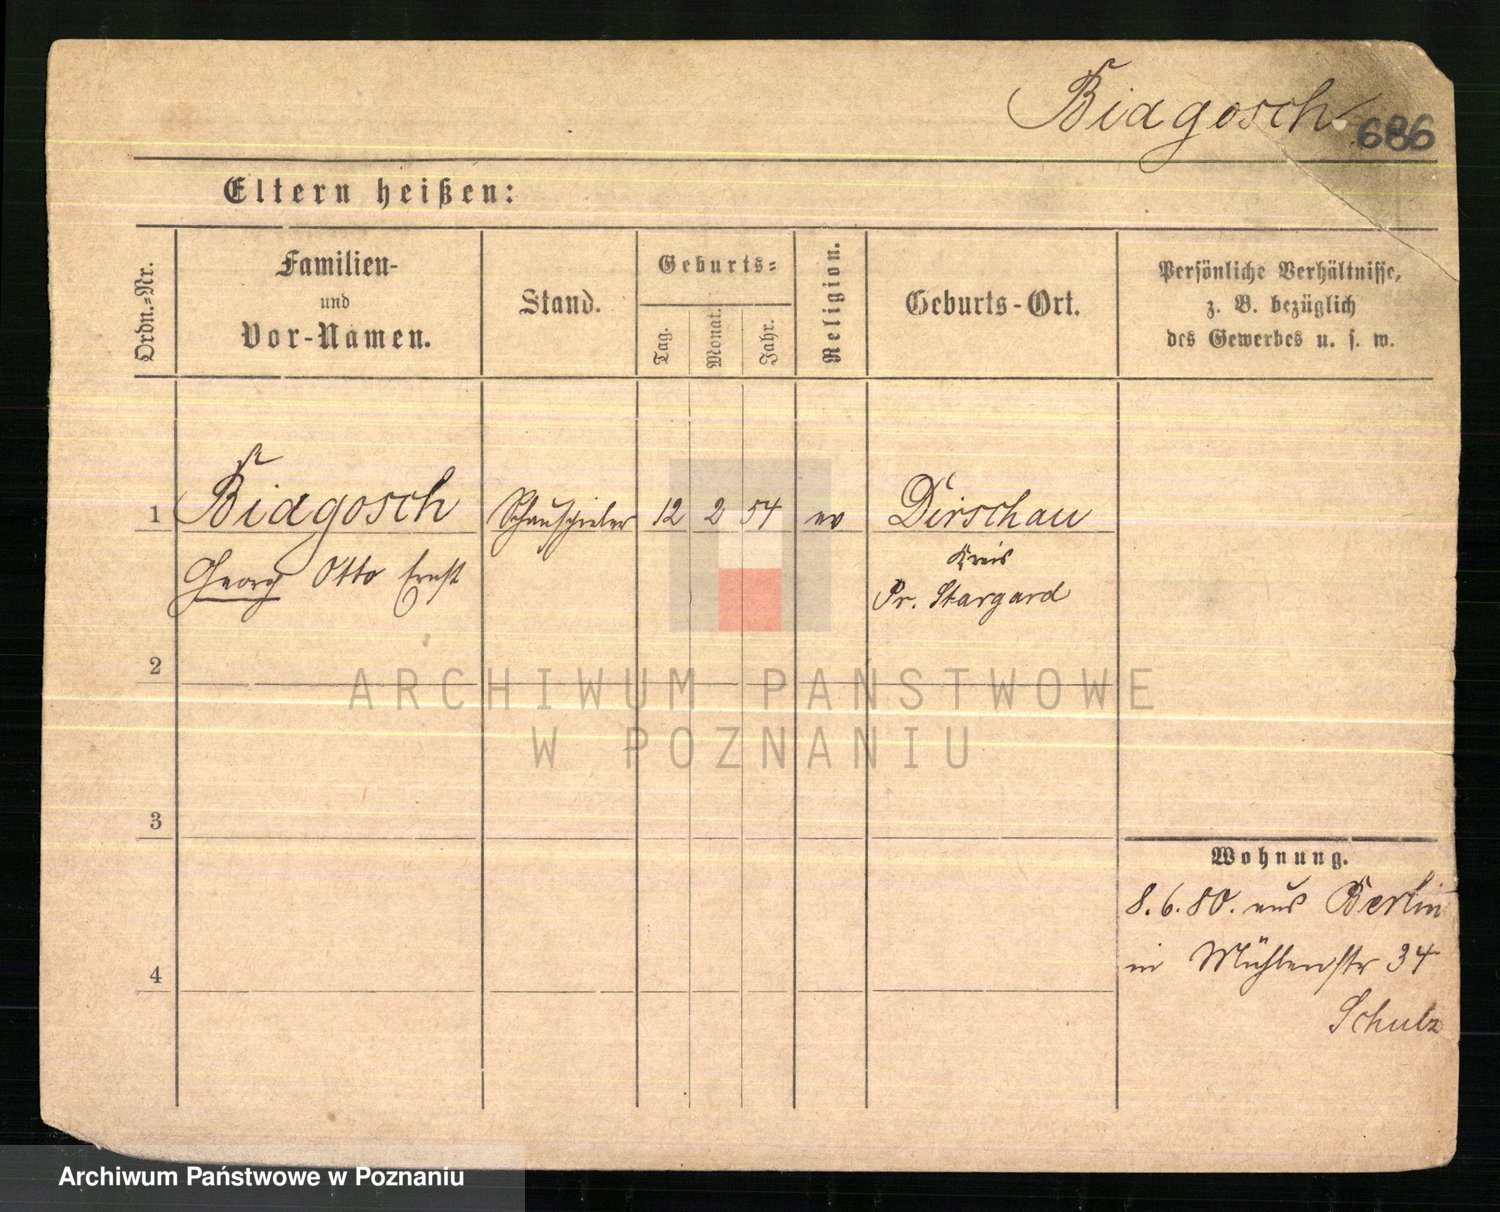 Bidgosch.
686
Eltern heißen:
Ordn.-Nr.
Familien-
und
Vor-Namen.
Stand.
Geburts-
Tag.
Monat.
Jahr.
Religion.
Geburts-Ort.
Persönliche Verhältnisse,
z. B. bezüglich
des Gewerbes u. s. w.
1 Bidgosch Schauspieler 12 2 54 ev Dirschau
Georg Otto Ernst
Kreis
Pr. Stargard
2
3
4
Wohnung.
8.6.80. aus Berlin
in Mühlenstr 34
Schulz
ARCHIWUM PAŃSTWOWE
W POZNANIU
Archiwum Państwowe w Poznaniu